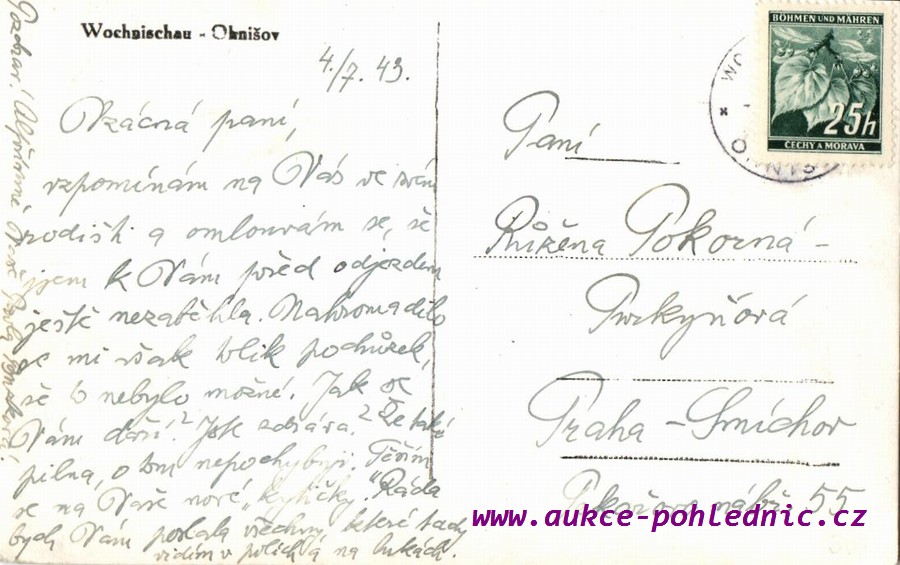 Wochnischau - Ohnišov
4./7. 43.
Vzácná paní,
vzpomínám na Vás ve svém
rodišti a omlouvám se, že
jsem k Vám před odjezdem
ještě nezaběhla. Nahromadilo
se mi však tolik pochůzek,
že to nebylo možné. Jak se
Vám daří? Jak zdráva? Že také
pilna, o tom nepochybuji. Těším
se na Vaše nové „kytičky". Ráda
bych Vám poslala všechny které tady
vidím v polích a na lukách.
Pozdrav! Vaše Pavla
BÖHMEN UND MÄHREN
25h
ČECHY A MORAVA
Paní
Růžena Pokorná -
Purkyňová
Praha - Smíchov
nábř. 55
www.aukce-pohlednic.cz